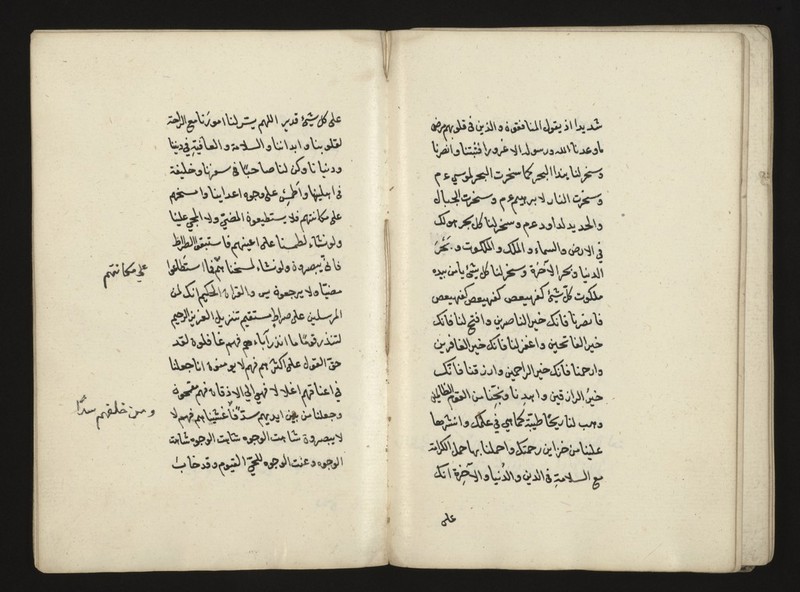 شديدا اذ يقول المنافقون والذين فى قلوبهم مرض
ما وعدنا الله ورسوله الا غرورا فثبتنا وانصرنا
وسخر لنا هذا البحر كما سخرت البحر لموسى ءم
وسخرت النار لابرهيم ءم وسخرت الجبال
والحديد لداود ءم وسخر لنا كل بحر هو لك
فى الارض والسماء والملك والملكوت وبحر
الدنيا وبحر الاخرة وسخر لنا كل شئ يا من بيده
ملكوت كل شئ كهيعص كهيعص كهيعص
فانصرنا فانك خير الناصرين وافتح لنا فانك
خير الفاتحين واغفر لنا فانك خير الغافرين
وارحمنا فانك خير الراحمين وارزقنا فانك
خير الرازقين واهدنا ونجنا من القوم الظالمين
وهب لنا ريحا طيبة كما هى فى علمك وانشرها
علينا من خزاين رحمتك واحملنا بها حمل الكرامة
مع السلامة فى الدين والدنيا والآخرة انك
على
على كل شئ قدير اللهم يسر لنا امورنا مع الراحة
لقلوبنا وابداننا والسلامة والعافية فى ديننا
ودنيانا وكن لنا صاحبا فى سفرنا وخليفة
فى اهلينا واطمس على وجوه اعداينا وامسخهم
على مكانتهم فلا يستطيعون المضى ولا المجئ علينا
ولو نشاء لطمسنا على اعينهم فاستبقوا الصراط
فانى يبصرون ولو نشاء لمسخناهم فما استطاعوا
على مكانتهم
مضيا ولا يرجعون يس والقرآن الحكيم انك لمن
المرسلين على صراط مستقيم تنزيل العزيز الرحيم
لتنذر قوما ما انذر آباءهم فهم غافلون لقد
حق القول على اكثرهم فهم لا يومنون انا جعلنا
فى اعناقهم اغلالا فهى الى الاذقان فهم مقمحون
وجعلنا من بين ايديهم سدا فاغشيناهم فهم لا
ومن خلفهم سدا
يبصرون شاهت الوجوه شاهت الوجوه شاهت
الوجوه وعنت الوجوه للحى القيوم وقد خاب